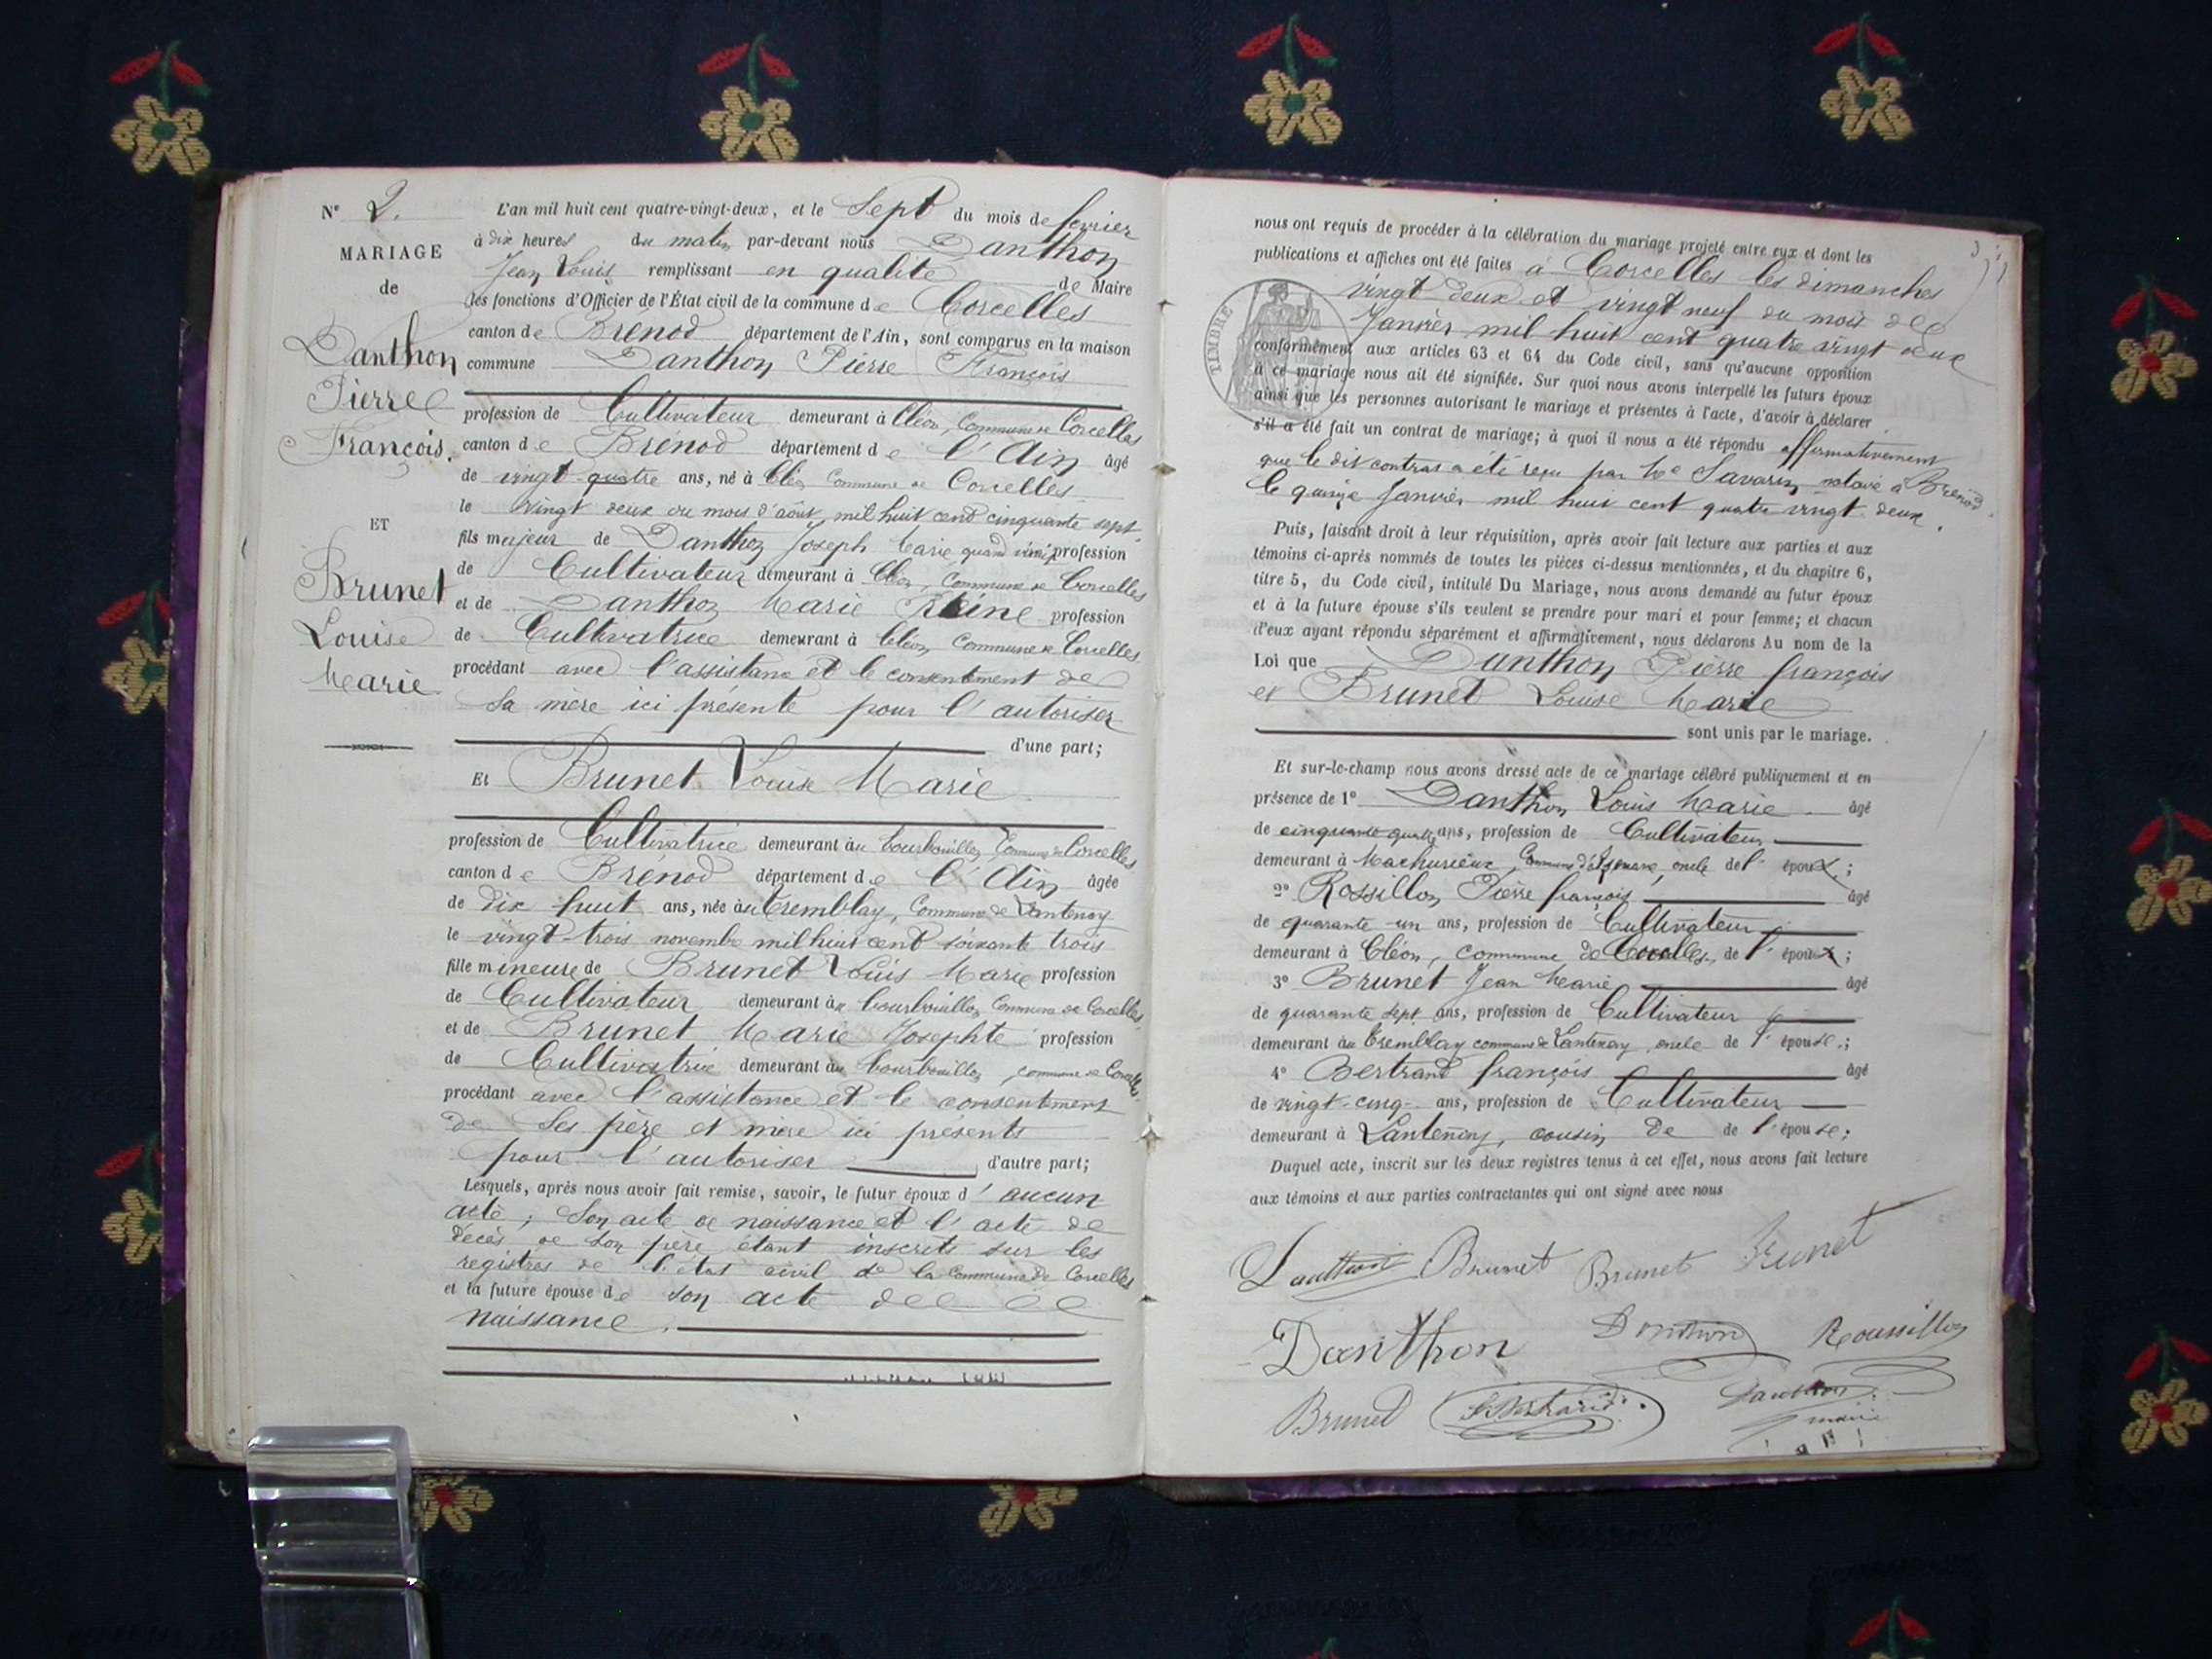 N° 2.
MARIAGE
de
Danthon
Pierre
François.
ET
Brunet
Louise
Marie
L'an mil huit cent quatre-vingt-deux, et le Sept du mois de fevrier
à dix heures du matin par-devant nous Danthon
Jean Louis remplissant en qualité de Maire
les fonctions d'Officier de l'État civil de la commune de Corcelles
canton de Brénod département de l'Ain, sont comparus en la maison
commune Danthon Pierre François
profession de Cultivateur demeurant à Cléon, Commune de Corcelles
canton de Brénod département de l'Ain âgé
de vingt-quatre ans, né à Cléon Commune de Corcelles
le vingt deux du mois d'août mil huit cent cinquante sept.
fils majeur de Danthon Joseph Marie quand vivait profession
de Cultivateur demeurant à Cléon, Commune de Corcelles
et de Danthon Marie Reine profession
de Cultivatrice demeurant à Cléon Commune de Corcelles
procédant avec l'assistance et le consentement de
Sa mère ici présente pour l'autoriser
d'une part;
Et Brunet Louise Marie
profession de Cultivatrice demeurant au bourbouillon Commune de Corcelles
canton de Brénod département de l'Ain âgée
de dix huit ans, née au tremblay, Commune de Lantenay
le vingt-trois novembre mil huit cent soixante trois
fille mineure de Brunet Louis Marie profession
de Cultivateur demeurant au bourbouillon Commune de Corcelles
et de Brunet Marie Josephte profession
de Cultivatrice demeurant au bourbouillon, commune de Corcelles
procédant avec l'assistance et le consentement
de Ses père et mère ici présents
pour l'autoriser d'autre part;
Lesquels, après nous avoir fait remise, savoir, le futur époux d'aucun
acte; Son acte de naissance et l'acte de
décès de Son père étant inscrits sur les
registres de l'état civil de la Commune de Corcelles
et la future épouse de son acte de
naissance.
nous ont requis de procéder à la célébration du mariage projeté entre eux et dont les
publications et affiches ont été faites à Corcelles les dimanches
vingt deux et vingt neuf du mois de
Janvier mil huit cent quatre vingt deux
TIMBRE
conformément aux articles 63 et 64 du Code civil, sans qu'aucune opposition
à ce mariage nous ait été signifiée. Sur quoi nous avons interpellé les futurs époux
ainsi que les personnes autorisant le mariage et présentes à l'acte, d'avoir à déclarer
s'il a été fait un contrat de mariage; à quoi il nous a été répondu affirmativement
que le dit contrat a été reçu par Me Savarin notaire à Brénod
le quinze Janvier mil huit cent quatre vingt deux.
Puis, faisant droit à leur réquisition, après avoir fait lecture aux parties et aux
témoins ci-après nommés de toutes les pièces ci-dessus mentionnées, et du chapitre 6,
titre 5, du Code civil, intitulé Du Mariage, nous avons demandé au futur époux
et à la future épouse s'ils veulent se prendre pour mari et pour femme; et chacun
d'eux ayant répondu séparément et affirmativement, nous déclarons Au nom de la
Loi que Danthon Pierre françois
et Brunet Louise Marie
sont unis par le mariage.
Et sur-le-champ nous avons dressé acte de ce mariage célébré publiquement et en
présence de 1° Danthon Louis Marie âgé
de cinquante-quatre ans, profession de Cultivateur
demeurant à Machurieux, Commune d'Izenave, oncle de l'époux;
2° Rossillon Pierre françois âgé
de quarante-un ans, profession de Cultivateur
demeurant à Cléon, commune de Corcelles, de l'époux;
3° Brunet Jean Marie âgé
de quarante sept ans, profession de Cultivateur
demeurant au tremblay commune de Lantenay, oncle de l'épouse.;
4° Bertrand françois âgé
de vingt-cinq ans, profession de Cultivateur
demeurant à Lantenay, cousin de de l'épouse;
Duquel acte, inscrit sur les deux registres tenus à cet effet, nous avons fait lecture
aux témoins et aux parties contractantes qui ont signé avec nous
Danthon Brunet Brunet Brunet
Danthon Danthon Roussillon
Brunet Danthon
maire